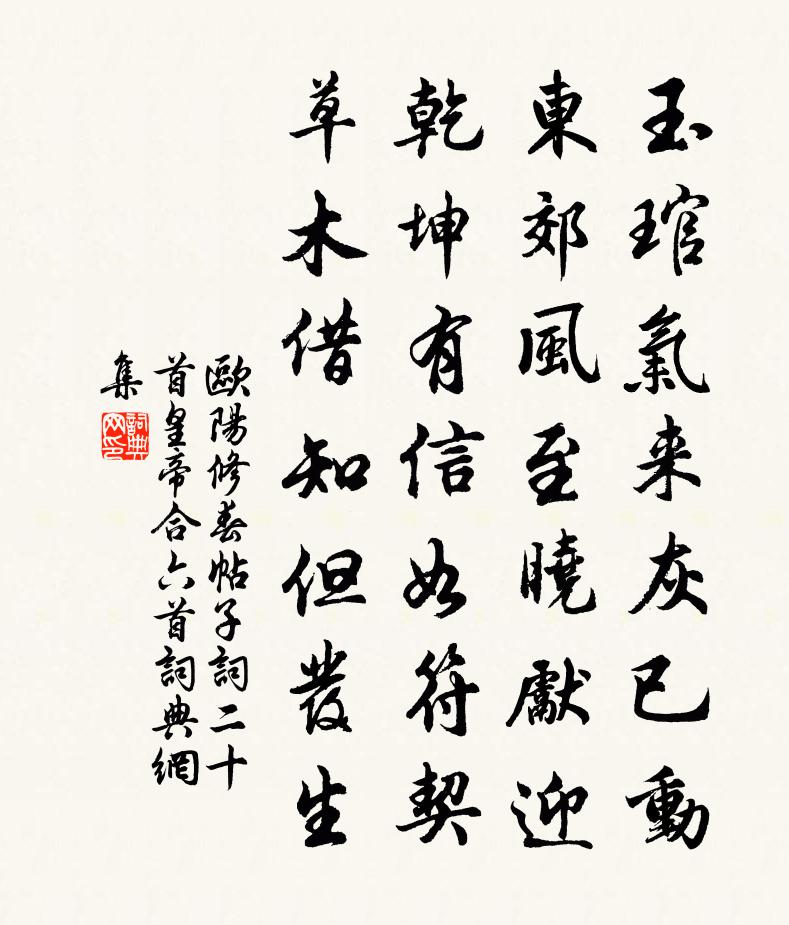 玉琯氣来灰已動
東郊風至曉獻迎
乾坤有信如符契
草木借知但發生
歐陽修春帖子詞二十
首皇帝合六首詞典網
集
詞典网印